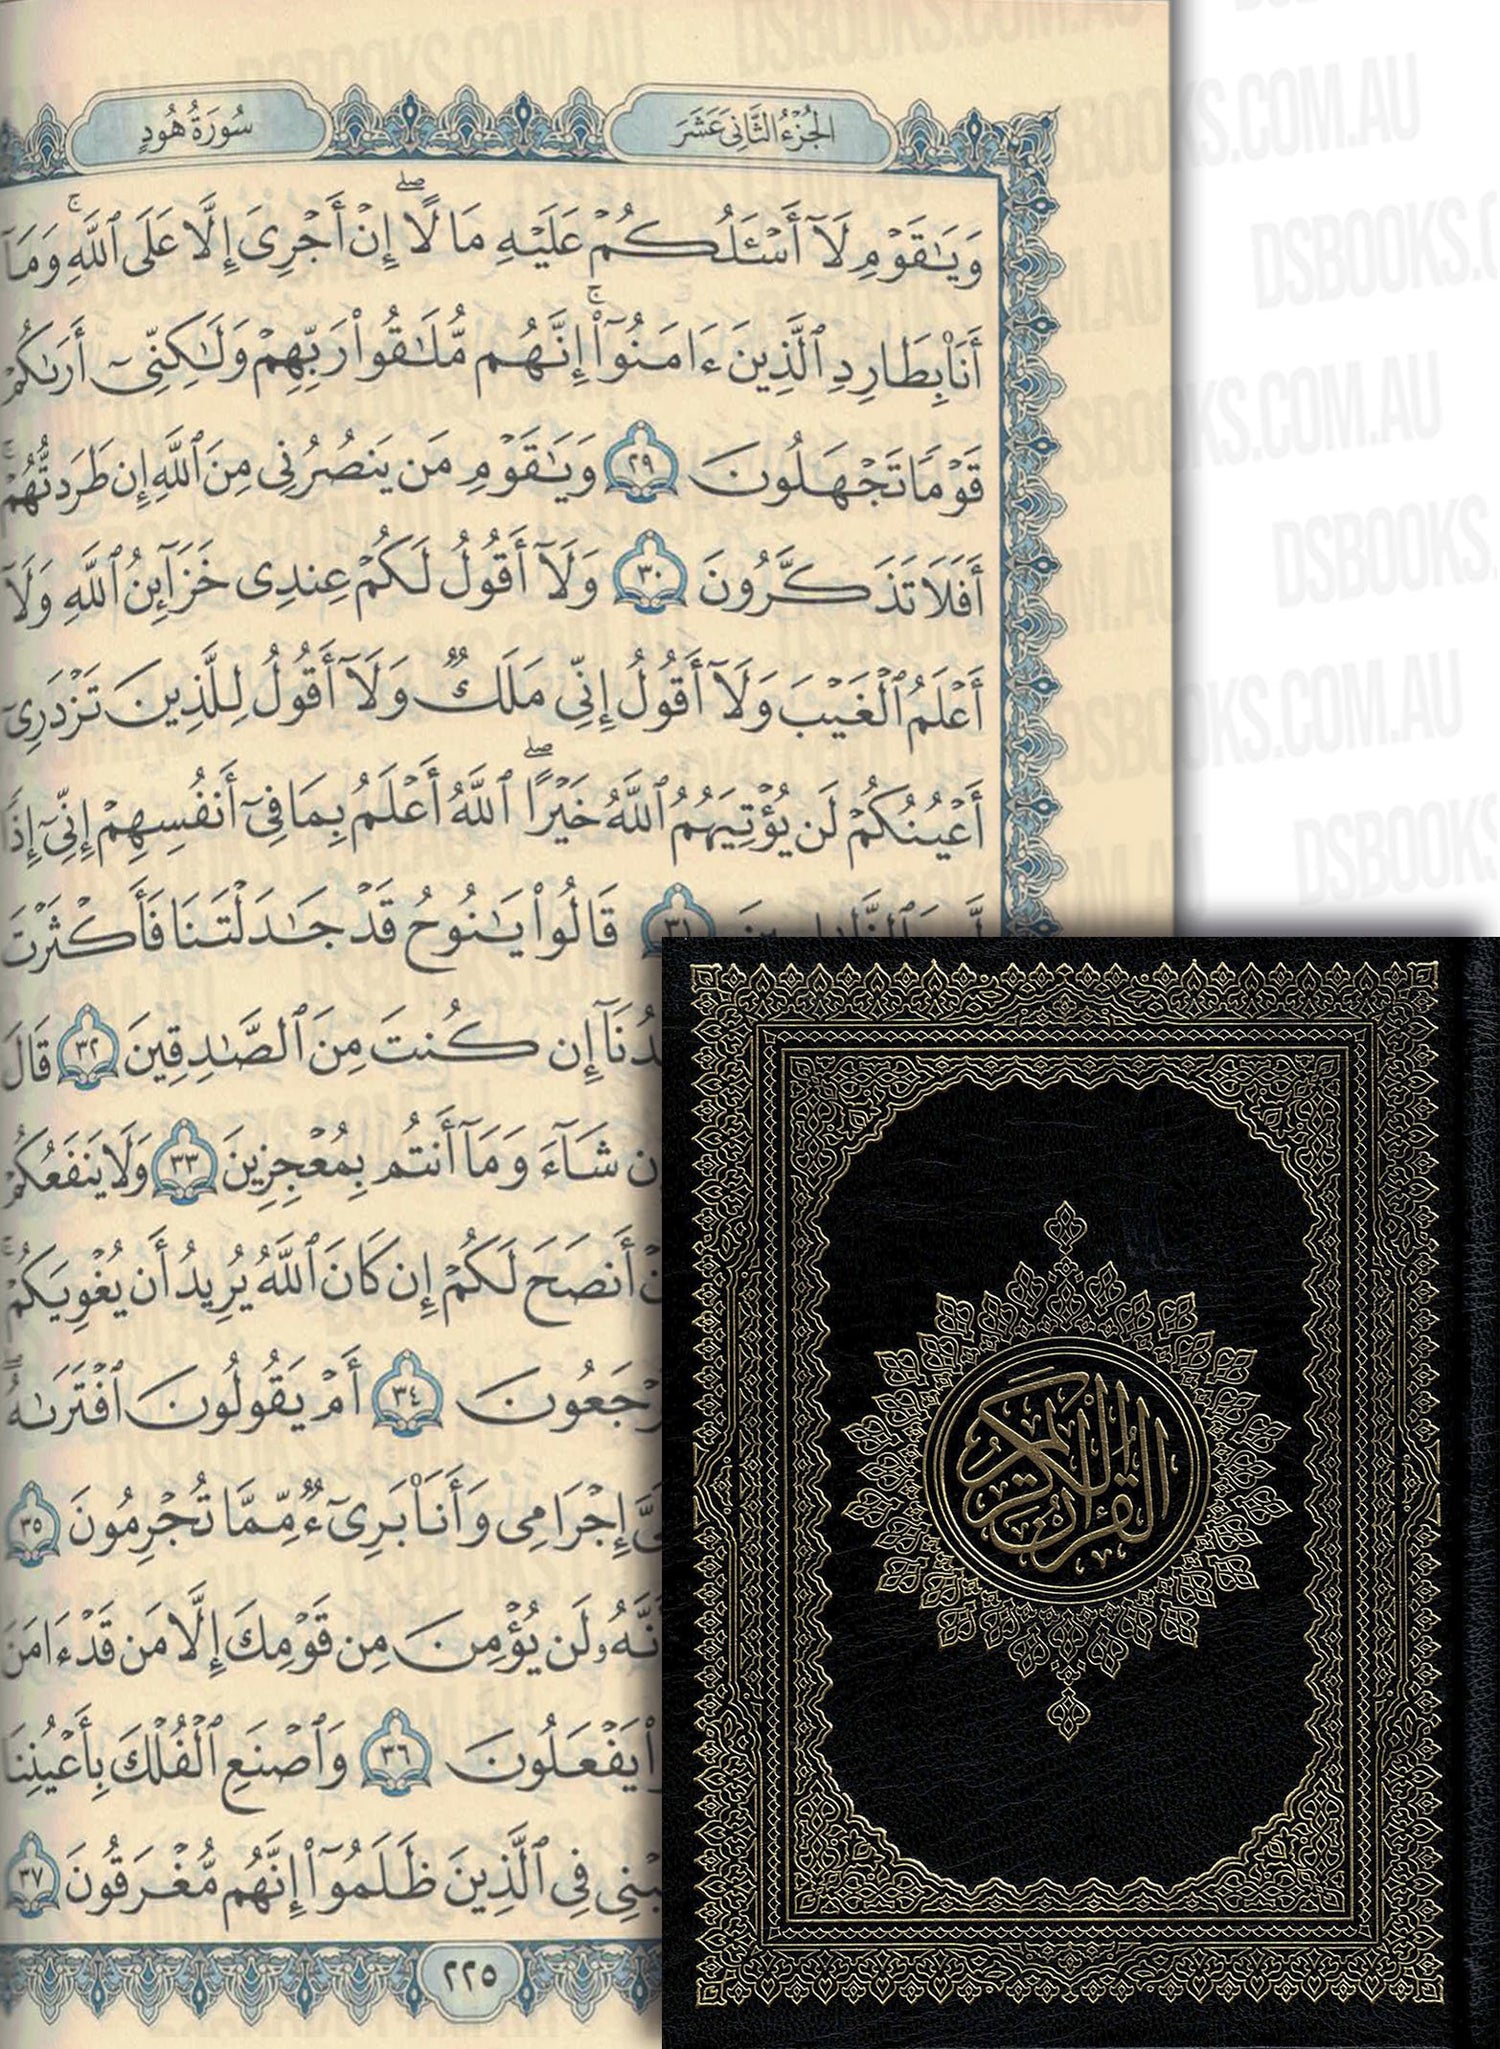 الجزء الثاني عشر
سورة هود
وَيَٰقَوْمِ لَآ أَسْـَٔلُكُمْ عَلَيْهِ مَالًا ۖ إِنْ أَجْرِىَ إِلَّا عَلَى ٱللَّهِ ۚ وَمَآ
أَنَا۠ بِطَارِدِ ٱلَّذِينَ ءَامَنُوٓا۟ ۚ إِنَّهُم مُّلَٰقُوا۟ رَبِّهِمْ وَلَٰكِنِّىٓ أَرَىٰكُمْ
قَوْمًا تَجْهَلُونَ ٢٩ وَيَٰقَوْمِ مَن يَنصُرُنِى مِنَ ٱللَّهِ إِن طَرَدتُّهُمْ ۚ
أَفَلَا تَذَكَّرُونَ ٣٠ وَلَآ أَقُولُ لَكُمْ عِندِى خَزَآئِنُ ٱللَّهِ وَلَآ
أَعْلَمُ ٱلْغَيْبَ وَلَآ أَقُولُ إِنِّى مَلَكٌ وَلَآ أَقُولُ لِلَّذِينَ تَزْدَرِىٓ
أَعْيُنُكُمْ لَن يُؤْتِيَهُمُ ٱللَّهُ خَيْرًا ۖ ٱللَّهُ أَعْلَمُ بِمَا فِىٓ أَنفُسِهِمْ إِنِّىٓ إِذًا
٣١ قَالُوا۟ يَٰنُوحُ قَدْ جَٰدَلْتَنَا فَأَكْثَرْتَ
إِن كُنتَ مِنَ ٱلصَّٰدِقِينَ ٣٢ قَالَ
شَآءَ وَمَآ أَنتُم بِمُعْجِزِينَ ٣٣ وَلَا يَنفَعُكُمْ
أَنصَحَ لَكُمْ إِن كَانَ ٱللَّهُ يُرِيدُ أَن يُغْوِيَكُمْ ۚ
٣٤ أَمْ يَقُولُونَ ٱفْتَرَىٰهُ ۖ
إِجْرَامِى وَأَنَا۠ بَرِىٓءٌ مِّمَّا تُجْرِمُونَ ٣٥
لَن يُؤْمِنَ مِن قَوْمِكَ إِلَّا مَن قَدْ ءَامَنَ
يَفْعَلُونَ ٣٦ وَٱصْنَعِ ٱلْفُلْكَ بِأَعْيُنِنَا
فِى ٱلَّذِينَ ظَلَمُوٓا۟ إِنَّهُم مُّغْرَقُونَ ٣٧
٢٢٥
القرآن الكريم
DSBOOKS.COM.AU